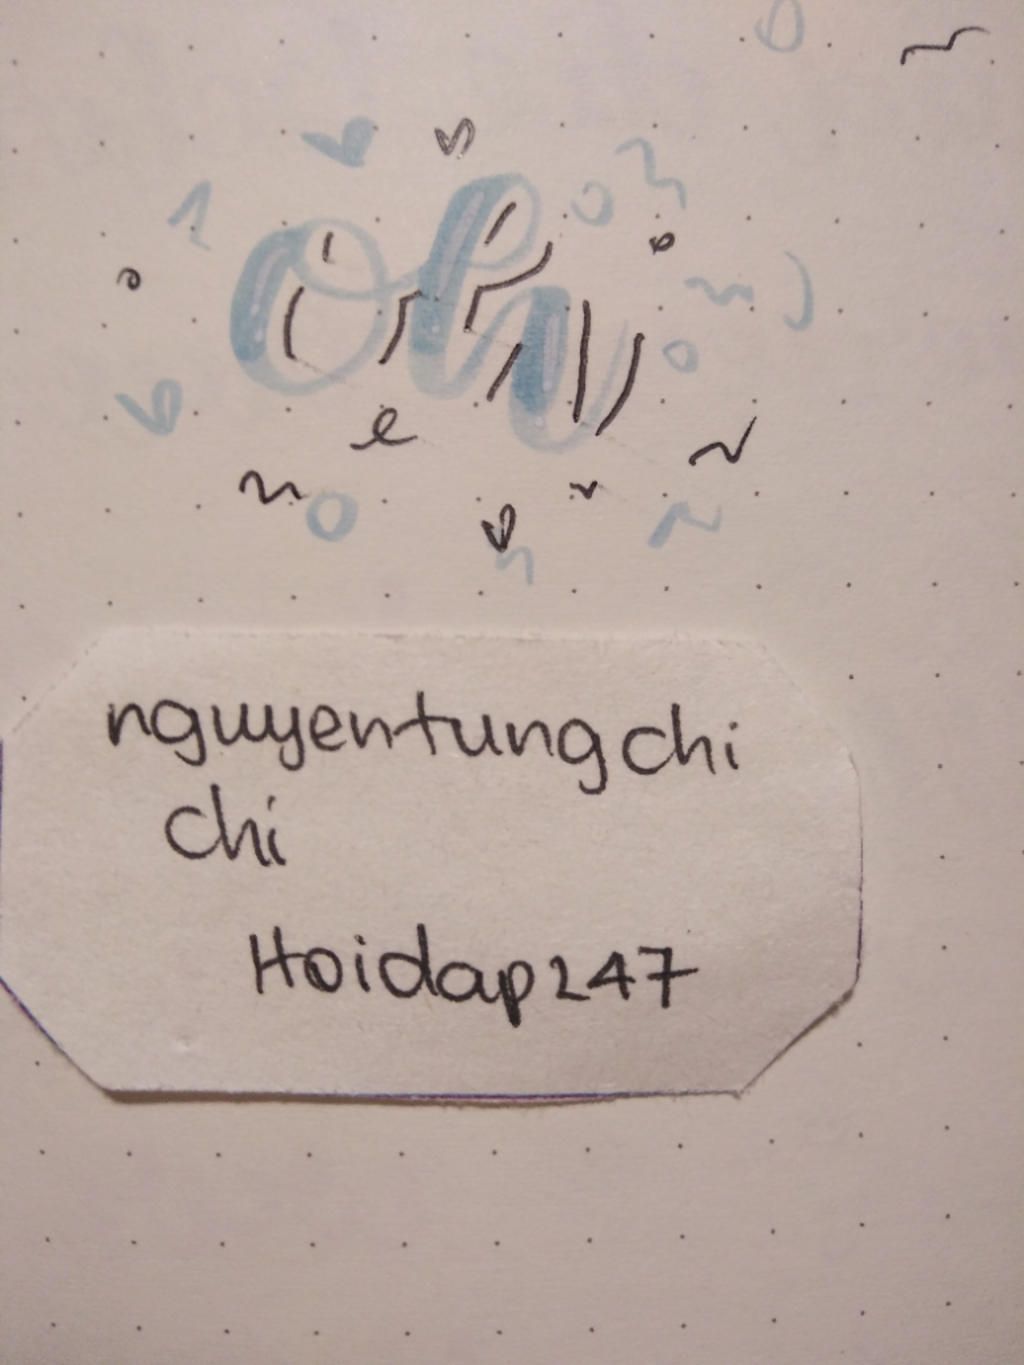 Oh
nguyentungchi
chi
Hoidap247